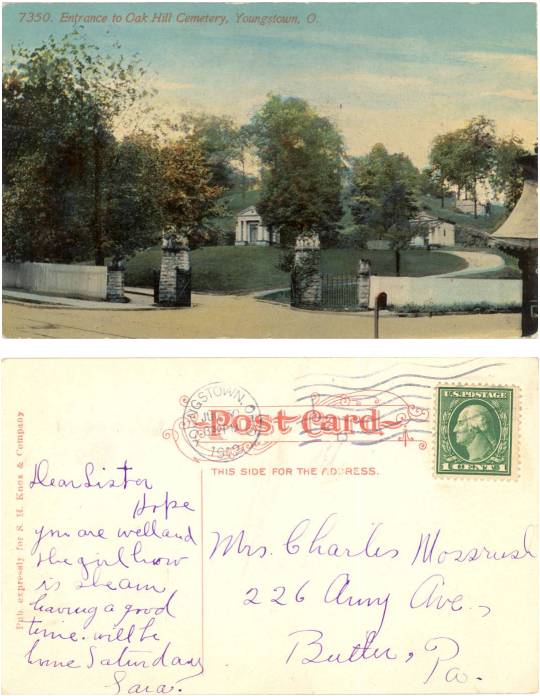 7350. Entrance to Oak Hill Cemetery, Youngstown, O.
YOUNGSTOWN, O.
1913
Post Card
THIS SIDE FOR THE ADDRESS.
U.S. POSTAGE
1 CENT 1
Pub. expressly for S. H. Knox & Company
Dear Sister
Hope
you are well and
the girl how
is
having a good
time. will be
home Saturday
Sara.
Mrs. Charles
226 Ave.,
Butler, Pa.